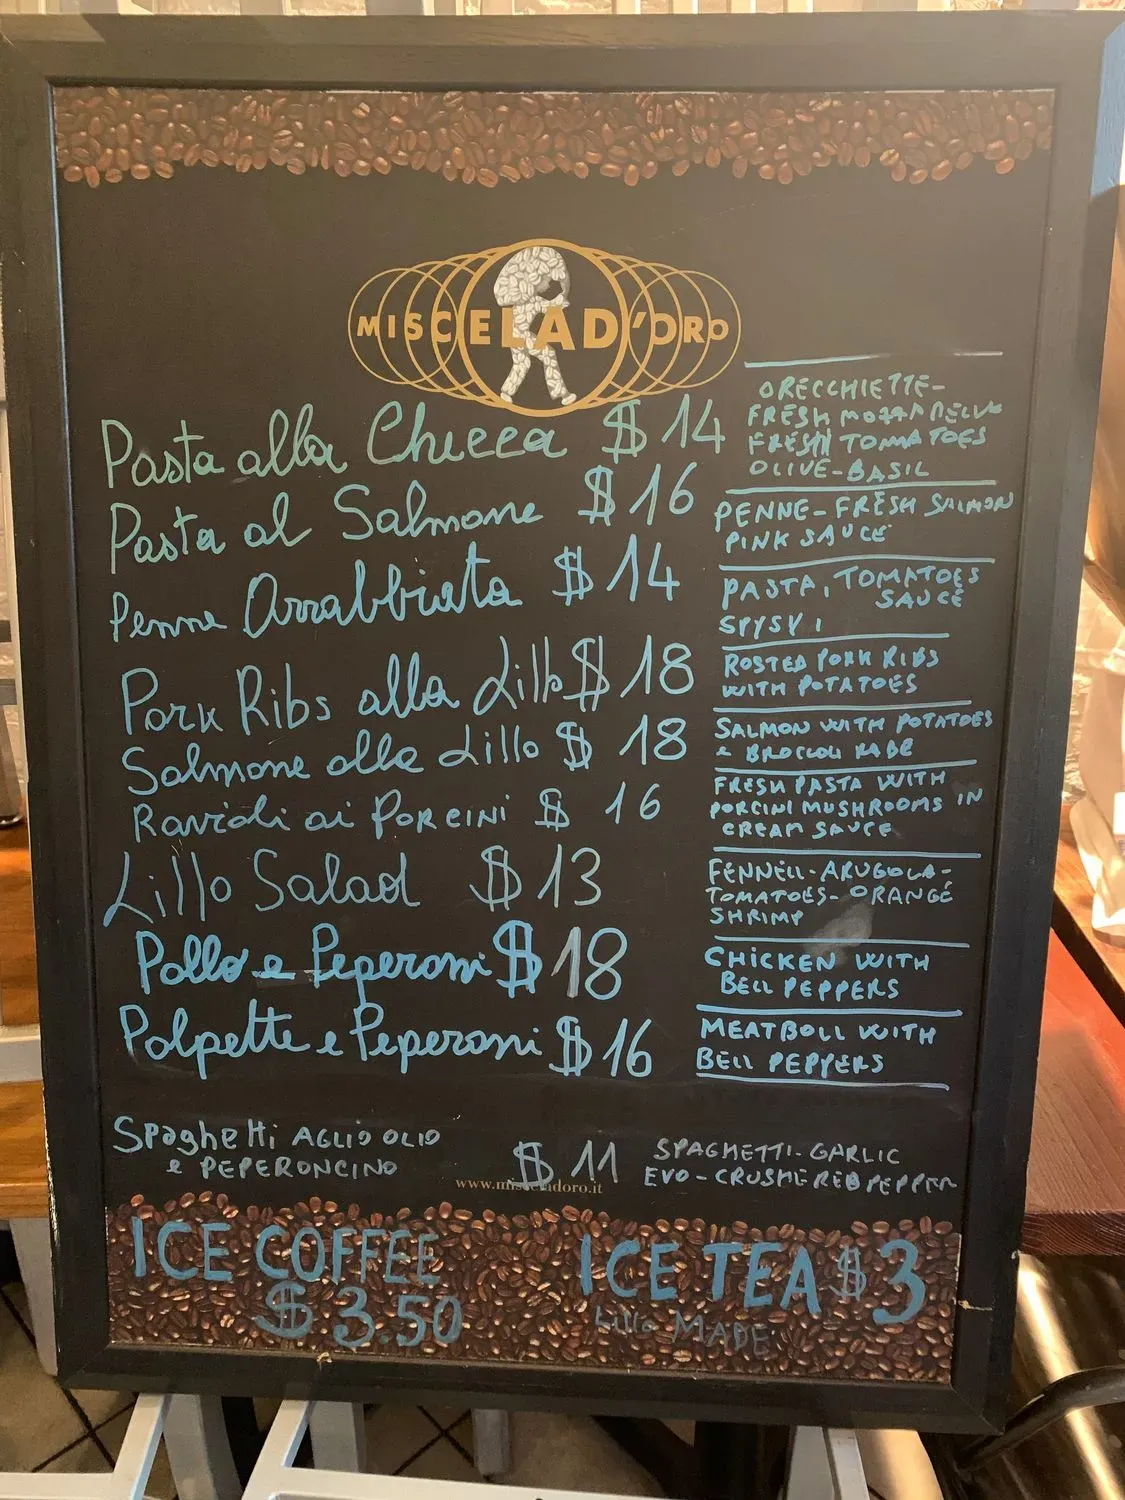 MISCELAD'ORO
Pasta alla Checca $14
ORECCHIETTE-
FRESH MOZZARELLA
FRESH TOMATOES
OLIVE-BASIL
Pasta al Salmone $16
PENNE-FRESH SALMON
PINK SAUCE
Penne Arrabbiata $14
PASTA, TOMATOES
SAUCE
SPYSY!
Pork Ribs alla Lillo $18
ROSTED PORK RIBS
WITH POTATOES
Salmone alla Lillo $18
SALMON WITH POTATOES
& BROCCOLI RABE
Ravioli ai PORCINI $16
FRESH PASTA WITH
PORCINI MUSHROOMS IN
CREAM SAUCE
Lillo Salad $13
FENNELL-ARUGOLA-
TOMATOES-ORANGE
SHRIMP
Pollo e Peperoni $18
CHICKEN WITH
BELL PEPPERS
Polpette e Peperoni $16
MEATBOLL WITH
BELL PEPPERS
Spaghetti AGLIO OLIO
e PEPERONCINO $11
SPAGHETTI-GARLIC
EVO-CRUSHE RED PEPPER
www.misceladoro.it
ICE COFFEE
$3.50
ICE TEA $3
Lillo MADE